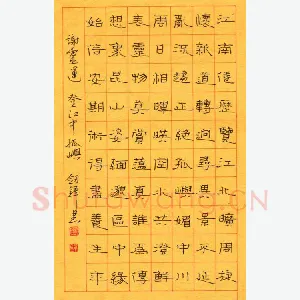 江南倦歷覽江北曠周旋
懷新道轉迥尋異景不延
亂流趨正絕孤嶼媚中川
日相輝映空水共澄鮮
表靈物莫賞蘊真誰為傳
想象崑山姿緬邈區中緣
始信安期術得盡養生年
謝靈運 登江中孤嶼